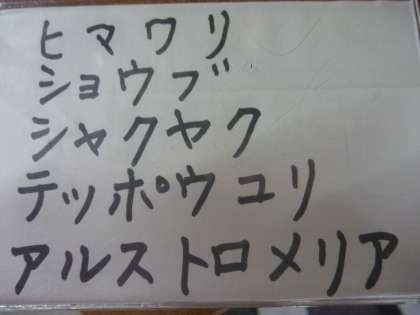 ヒマワリ
ショウブ
シャクヤク
テッポウユリ
アルストロメリア